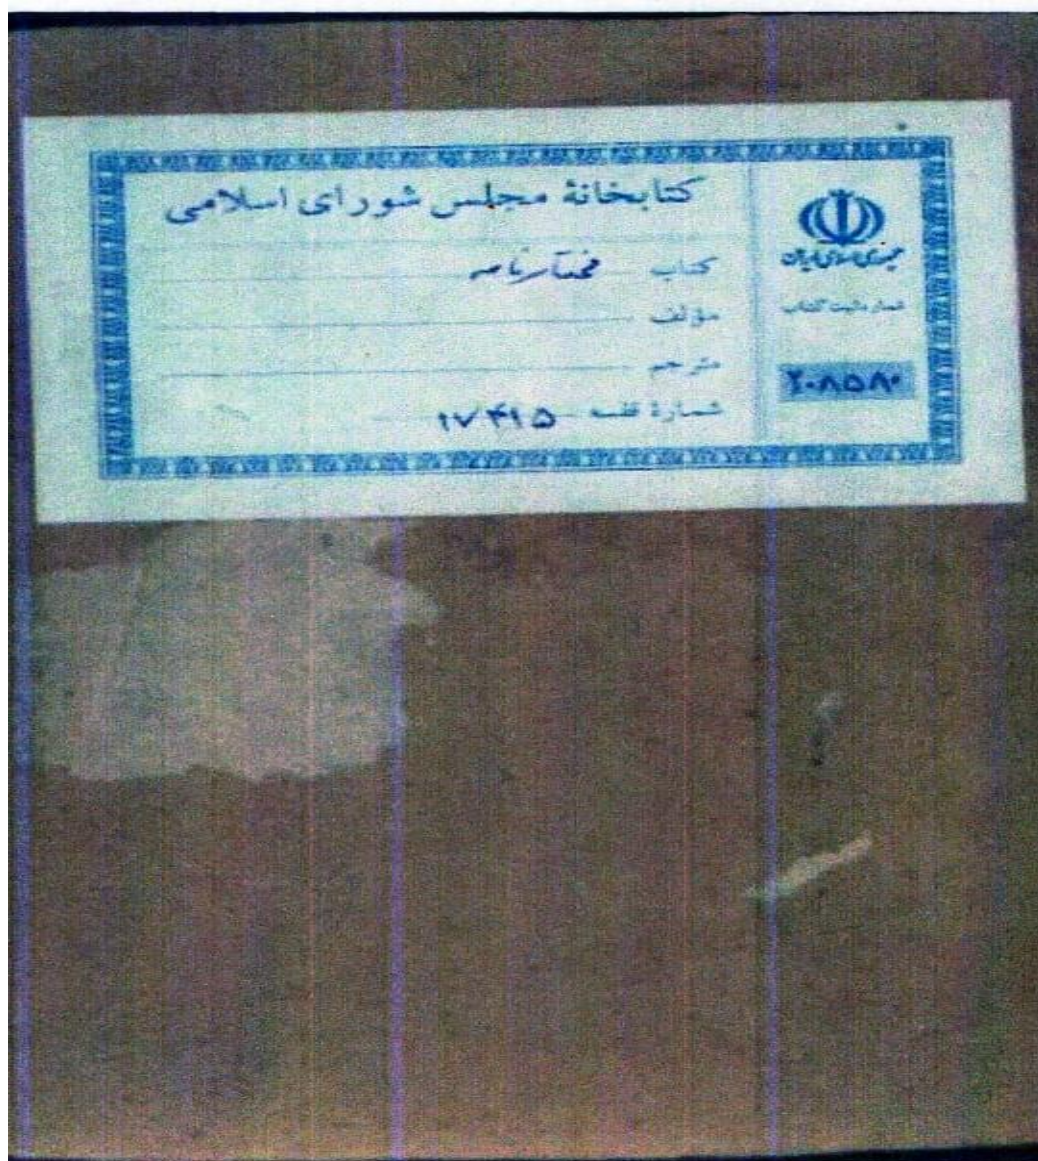 کتابخانهٔ مجلس شورای اسلامی
کتاب مختارنامه
مؤلف
مترجم
شمارهٔ قفسه ۱۷۴۱۵
جمهوری اسلامی ایران
شماره ثبت کتاب
۲۰۸۵۸۰